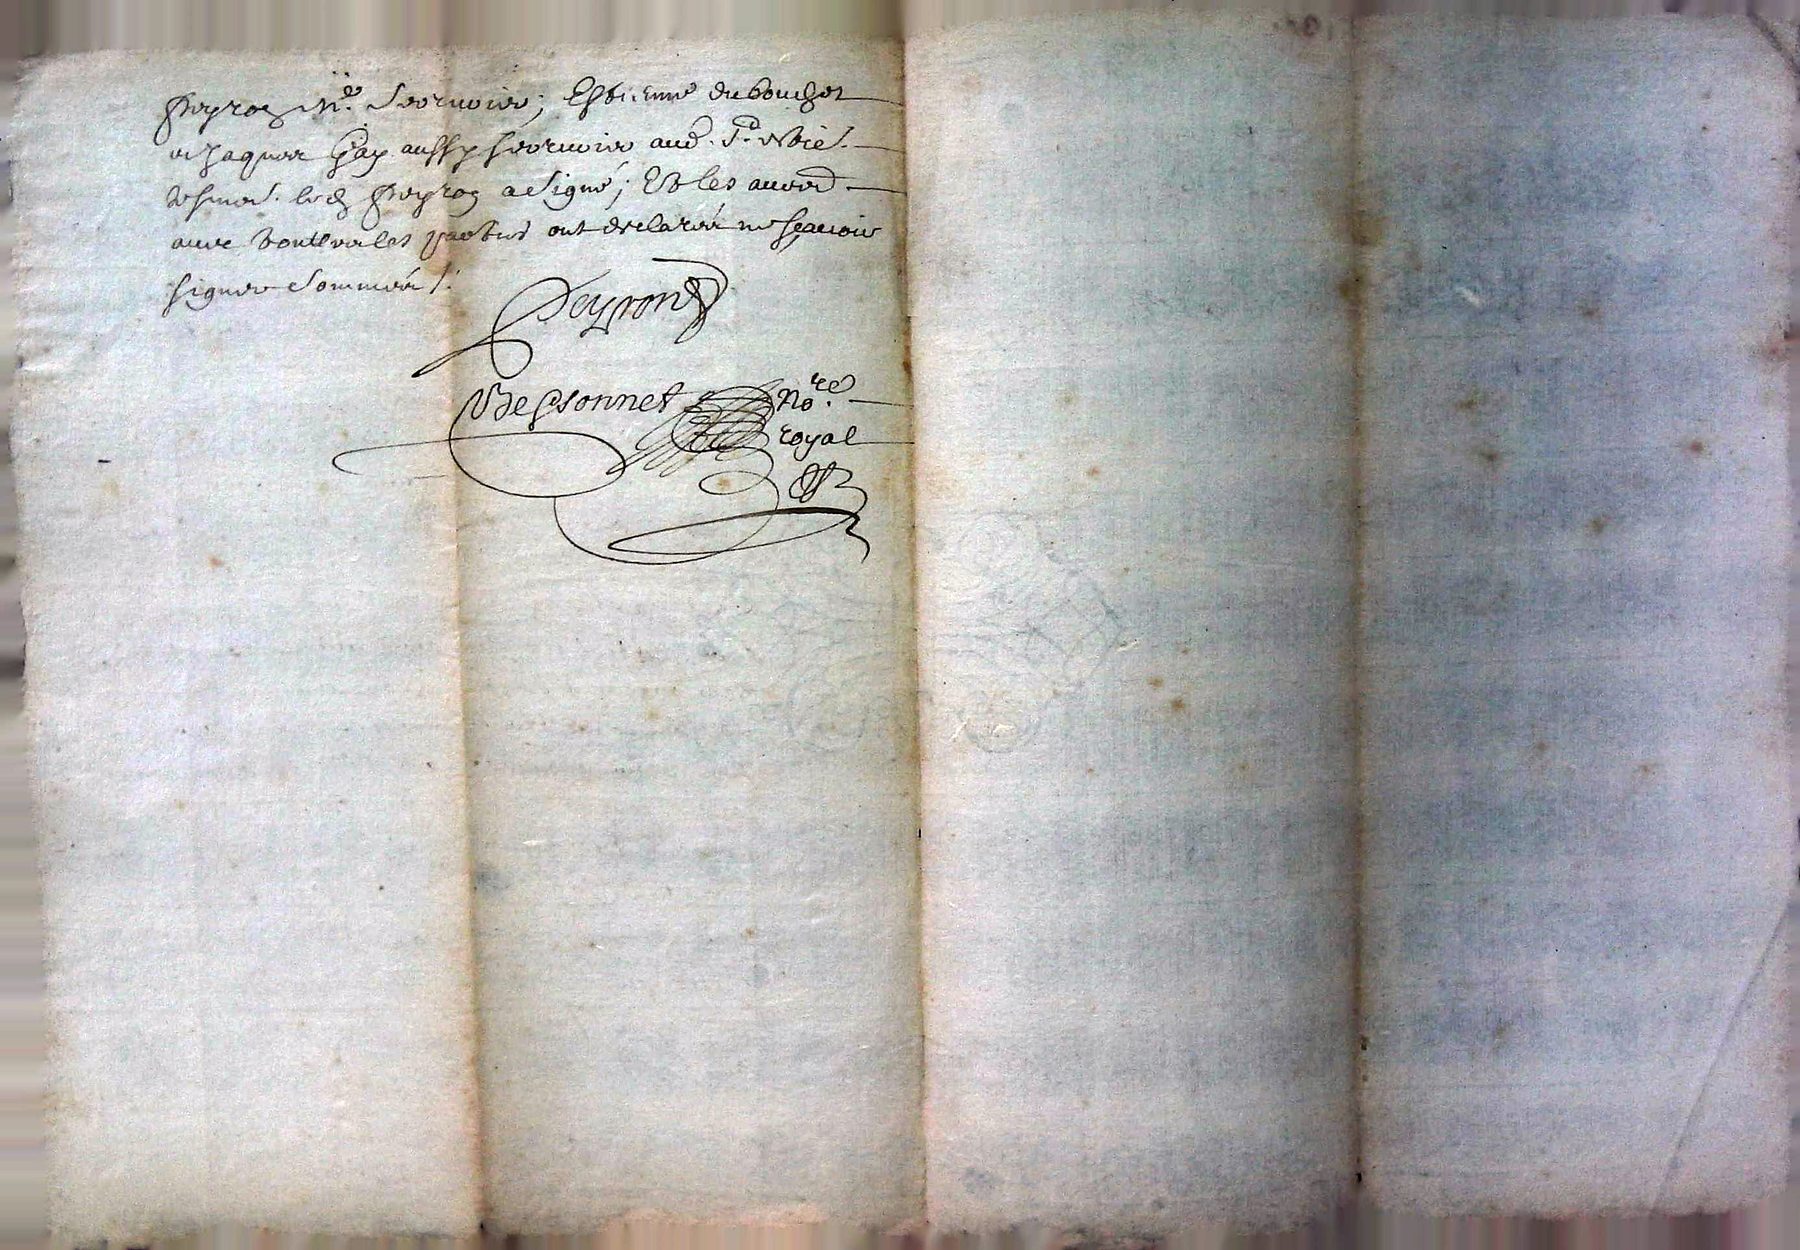 Peyron Me. Serrurier; Estienne du bouchet
et Jaques Gay aussy serrurier aud. St. Noiel.
tesmoi. led. Peyron a signé; Et les autres
avec toutes les parties ont declaré ne sçavoir
signer sommés /.
Peyron
Bessonnet Nore.
royal